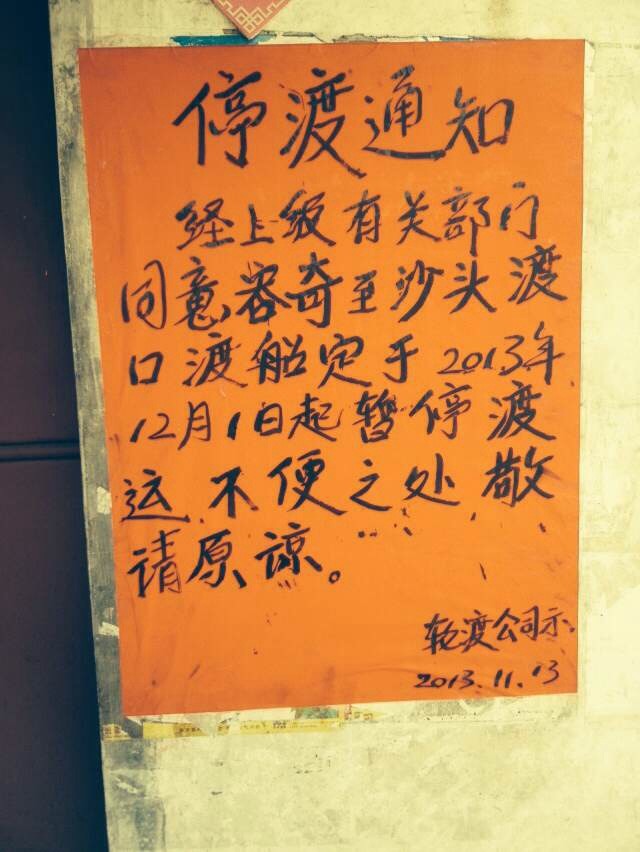 停渡通知
经上级有关部门
同意容奇至沙头渡
口渡船定于2013年
12月1日起暂停渡
运.不便之处敬
请原谅。
轮渡公司示
2013.11.13